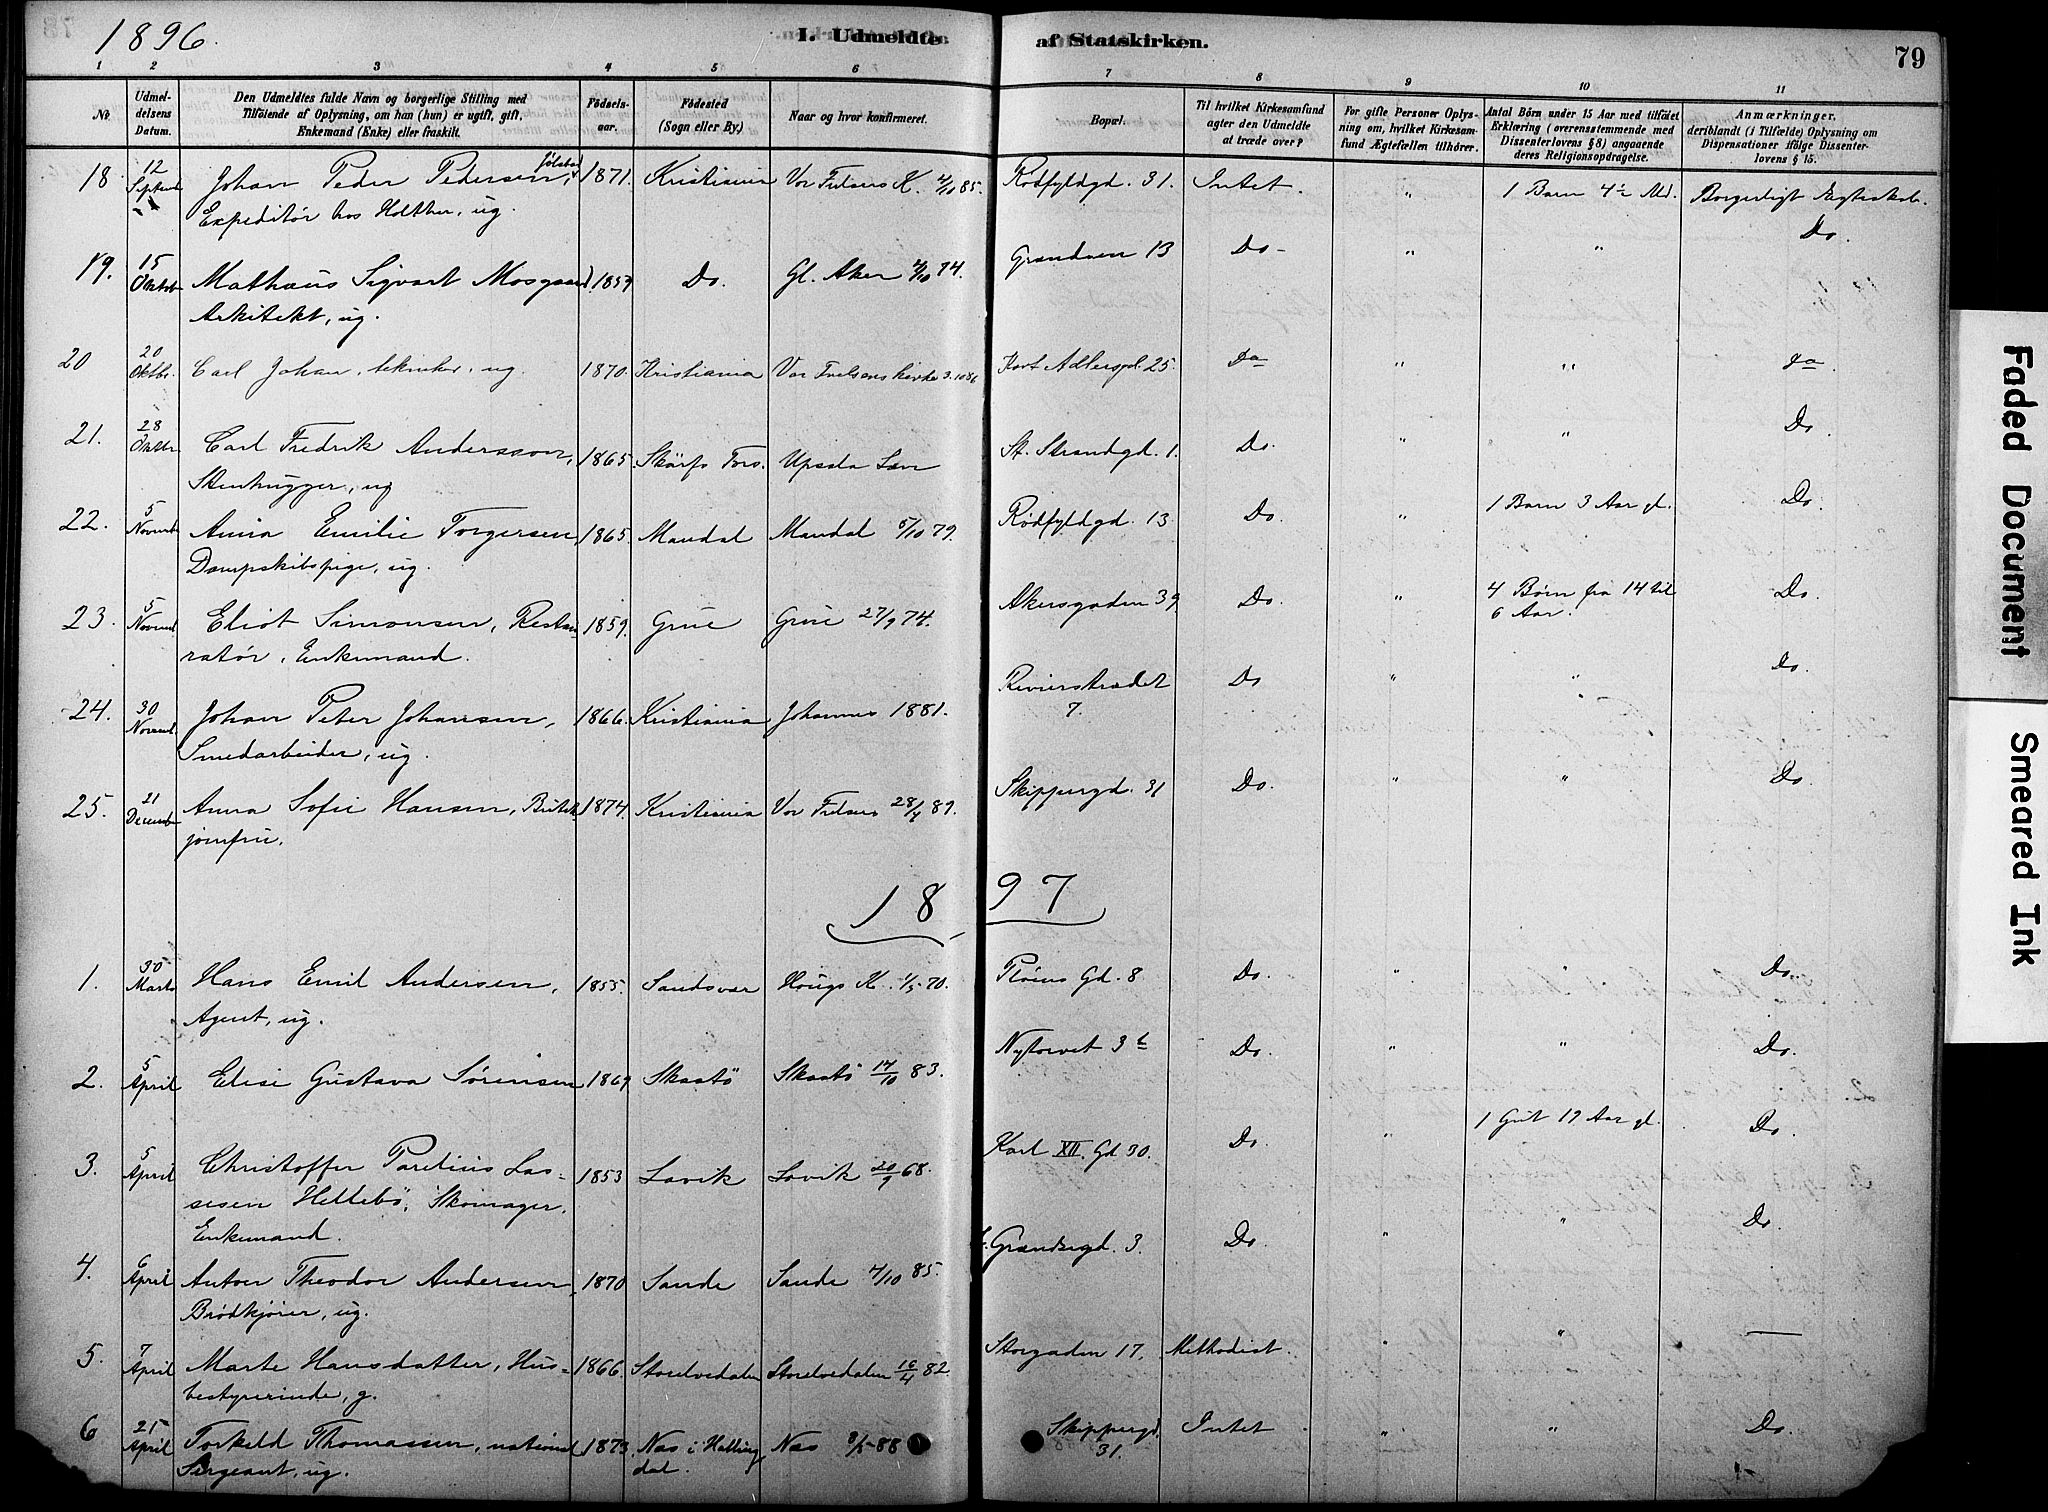 1896.
I. Udmeldte af Statskirken.
79
1 2 3 4 5 6 7 8 9 10 11
Nr.
Udmel-
delsens
Datum.
Den Udmeldtes fulde Navn og borgerlige Stilling med
Tilføiende af Oplysning, om han (hun) er ugift, gift,
Enkemand (Enke) eller fraskilt.
Fødsels-
aar.
Fødested
(Sogn eller By.)
Naar og hvor konfirmeret.
Bopæl.
Til hvilket Kirkesamfund
agter den Udmeldte
at træde over?
For gifte Personer Oplys-
ning om, hvilket Kirkesam-
fund Ægtefællen tilhører.
Antal Børn under 15 Aar med tilføiet
Erklæring (overensstemmende med
Dissenterlovens § 8) angaaende
deres Religionsopdragelse.
Anmærkninger,
deriblandt (i Tilfælde) Oplysning om
Dispensationer ifølge Dissenter-
lovens § 15.
18 12 Septemb Johan Peder Pedersen, 1871. Kristiania Vor Frelsers K. 4/10 85. Rødfyldgd. 31. Intet. " 1 Barn 4½ Md. Borgerligt Ægteskab.
Expeditør hos Holther, ug.
19. 15 Oktob Mathæus Sigvart Mosgaard 1859 Do. Gl. Aker 4/10 74. Grændsen 13 Do - " " Do.
Arkitekt, ug.
20 20 Oktbr. Carl Johan, tekniker, ug. 1870. Kristiania Vor Frelsers kirke 3.10 86 Kort Adlersgd. 25. do " " do
21. 28 Oktbr Carl Fredrik Andersson, 1865. Skärfs Fors. Upsala Län St. Strandgd. 1. Do. " " Do
Stenhugger, ug
22. 5 Novemb Anna Emilie Torgersen, 1865. Mandal Mandal 5/10 79. Rødfyldgd. 13. Do. " 1 Barn 3 Aar gl. Do.
Dampskibspige, ug.
23. 5 Novemb Eliot Simonsen, Restau- 1859. Grue Grue 27/9 74. Akersgaden 39 Do. " 4 Børn fra 14 til
6 Aar. Do.
ratør, Enkemand.
24. 30 Novemb. Johan Peter Johansen, 1866. Kristiania Johannes 1881. Revierstrædet
7. Do " " Do.
Smedarbeider, ug.
25. 21 Decemb Anna Sofie Hansen, Butik 1874. Kristiania Vor Frelsers 28/4 89. Skippergd. 31 Do. " " Do.
jomfru.
1897
1. 30 Marts Hans Emil Andersen, 1855. Sandsvær Hougs K. 1/5 70. Pløens Gd. 8 Do. " " Do.
Agent, ug.
2. 5 April Elise Gustava Sørensen 1869 Skaatø Skaatø 14/10 83. Nytorvet 3 b Do. " " Do.
3. 5 April Christoffer Parelius Las- 1853 Lavik Lavik 20/9 68. Karl XII. Gd 30. Do. " 1 Gut 12 Aar gl. Do.
sesen Hellebø, Skomager,
Enkemand.
4. 6 April Anton Theodor Andersen, 1870 Sande Sande 4/10 85. Grændsegd. 3. Do. " " Do.
Brødkjører, ug.
5. 7 April Marte Hansdatter, Hus- 1866. Storelvedalen Storelvedalen 16/4 82 Storgaden 17. Methodist. " " —
bestyrerinde, g.
6 25 April Torkeld Thomassen, national 1873. Næs i Halling
dal. Næs 8/5 88 Skippergd.
31. Intet " " Do.
Sergeant, ug.
Faded Document
Smeared Ink